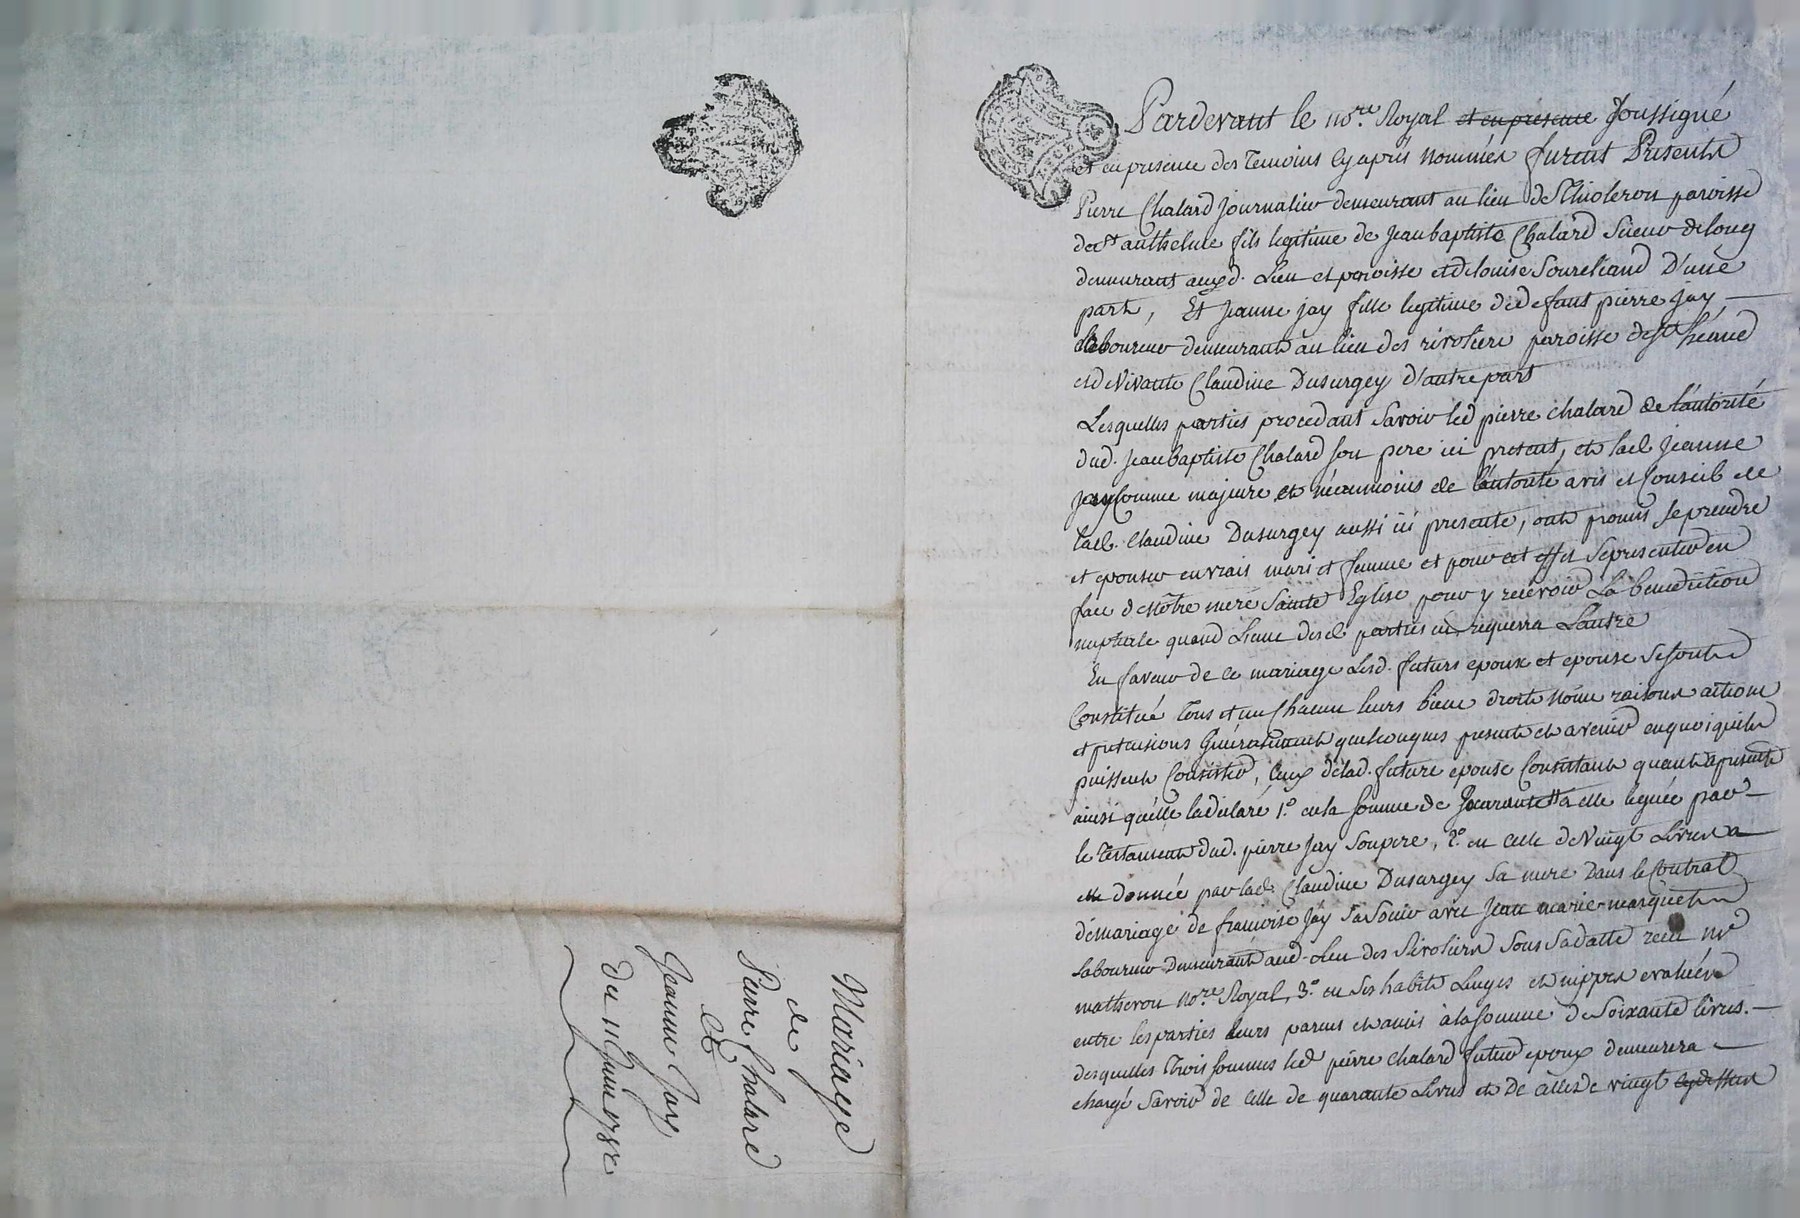 Mariage
de
Pierre Chalard
et
Jeanne Jay
du 11 Juin
Pardevant le no.re Royal et en présence soussigné
et en présence des Temoins cy après nommés furent Présents
Pierre Chalard journalier demeurant au lieu de Thioleron paroisse
de st anthelme fils legitime de Jean baptiste Chalard sieur de long
demeurant auxd. Lieu et paroisse et de louise D'une
part, Et Jeanne jay fille legitime de defunt pierre Jay
laboureur demeurant au lieu des rivoliere paroisse de st héand
et de vivante Claudine Dusurgey d'autre part
Lesquelles parties procedant savoir led pierre chalard de l'autorité
dud. Jean baptiste Chalard son pere ici present, et lad Jeanne
jay comme majeure et néanmoins de l'autorité avis et conseil de
lad. Claudine Dusurgey aussi ici presente, ont promis se prendre
et epouser en vrais mari et femme et pour cet effet se presenter en
face de nôtre mere Sainte Eglise pour y recevoir La benediction
nuptiale quand L'une desd parties en requerra L'autre
En faveur de ce mariage Lesd. futurs epoux et epouse se sont
Constitué tous et un Chacun leurs biens droits noms raisons actions
et pretensions Généralement quelconques presents et avenir en quoi qu'ils
puissent Consister, Ceux de lad. future epouse Consistants quant à présent
ainsi qu'elle la déclaré 1.° en la somme de quarante ₶ a elle léguée par
le Testament dud. pierre Jay son pere, 2.° en celle de vingt Livres a
elle donnée par lad. Claudine Dusurgey sa mere dans le Contrat
de mariage de françoise Jay sa soeur avec Jean marie marquet
laboureur demeurant aud. lieu des Rivoliere sous sa datte reçu me
matheron no.re Royal, 3.° en ses habits Linges et nippes evalués
entre les parties leurs parens et amis à la somme de Soixante livres.
desquelles Trois sommes led pierre chalard futur epoux demeurera
chargé savoir de celle de quarante Livres et de celle de vingt cy dessus